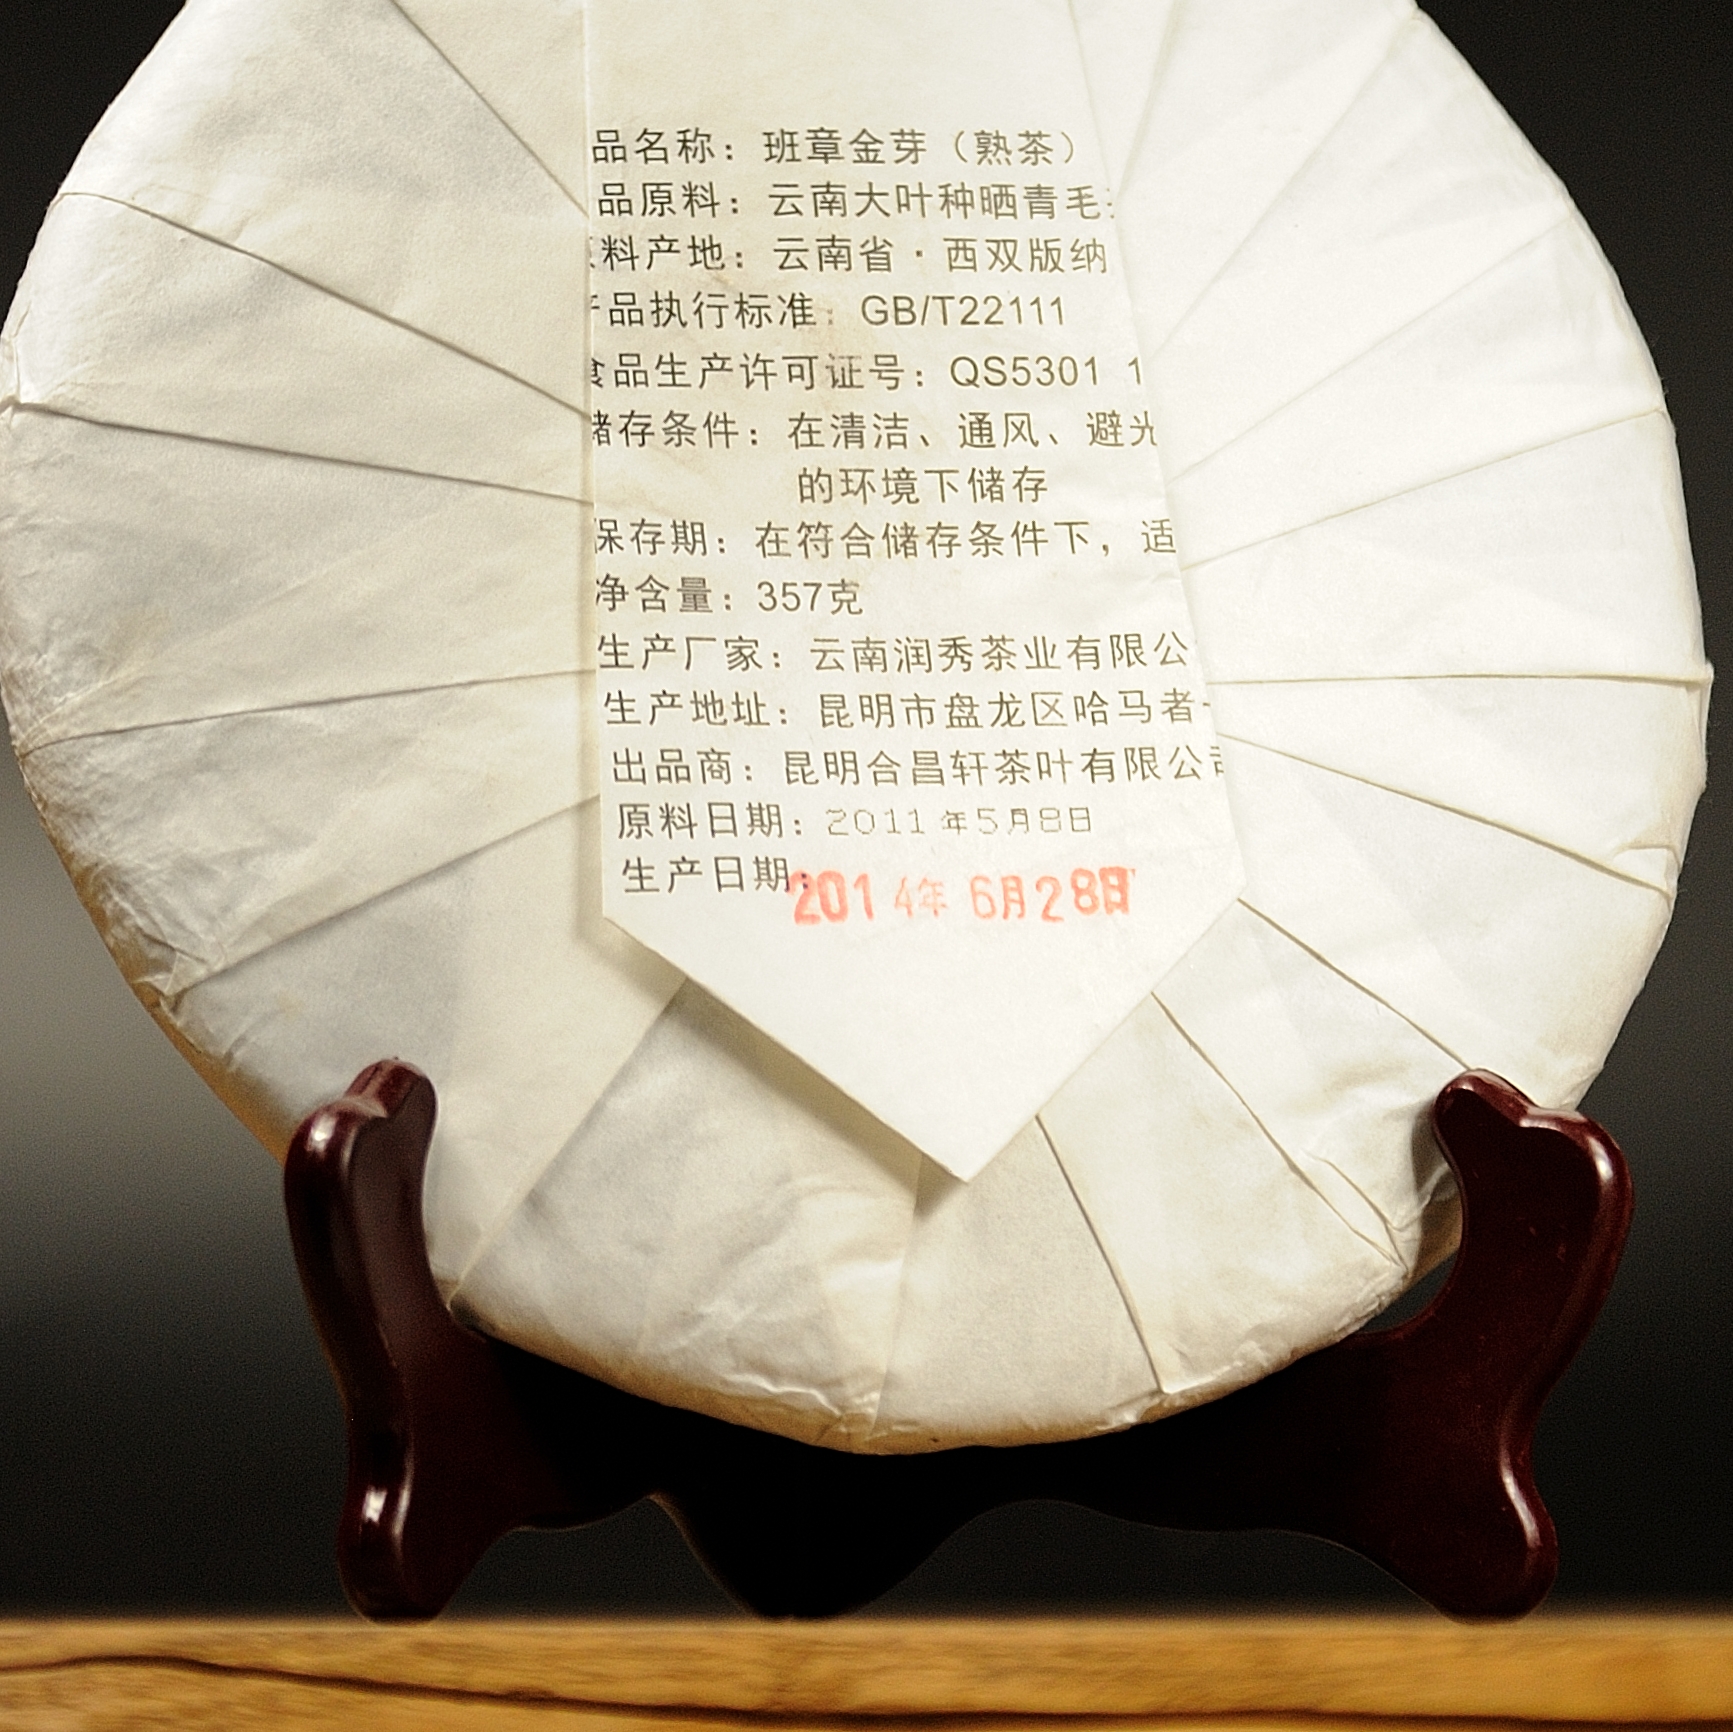 品名称：班章金芽（熟茶）
品原料：云南大叶种晒青毛
料产地：云南省·西双版纳
品执行标准：GB/T22111
食品生产许可证号：QS5301 1
储存条件：在清洁、通风、避光
的环境下储存
保存期：在符合储存条件下，适
净含量：357克
生产厂家：云南润秀茶业有限公
生产地址：昆明市盘龙区哈马者
出品商：昆明合昌轩茶叶有限公司
原料日期：2011年5月8日
生产日期：2014年6月28日